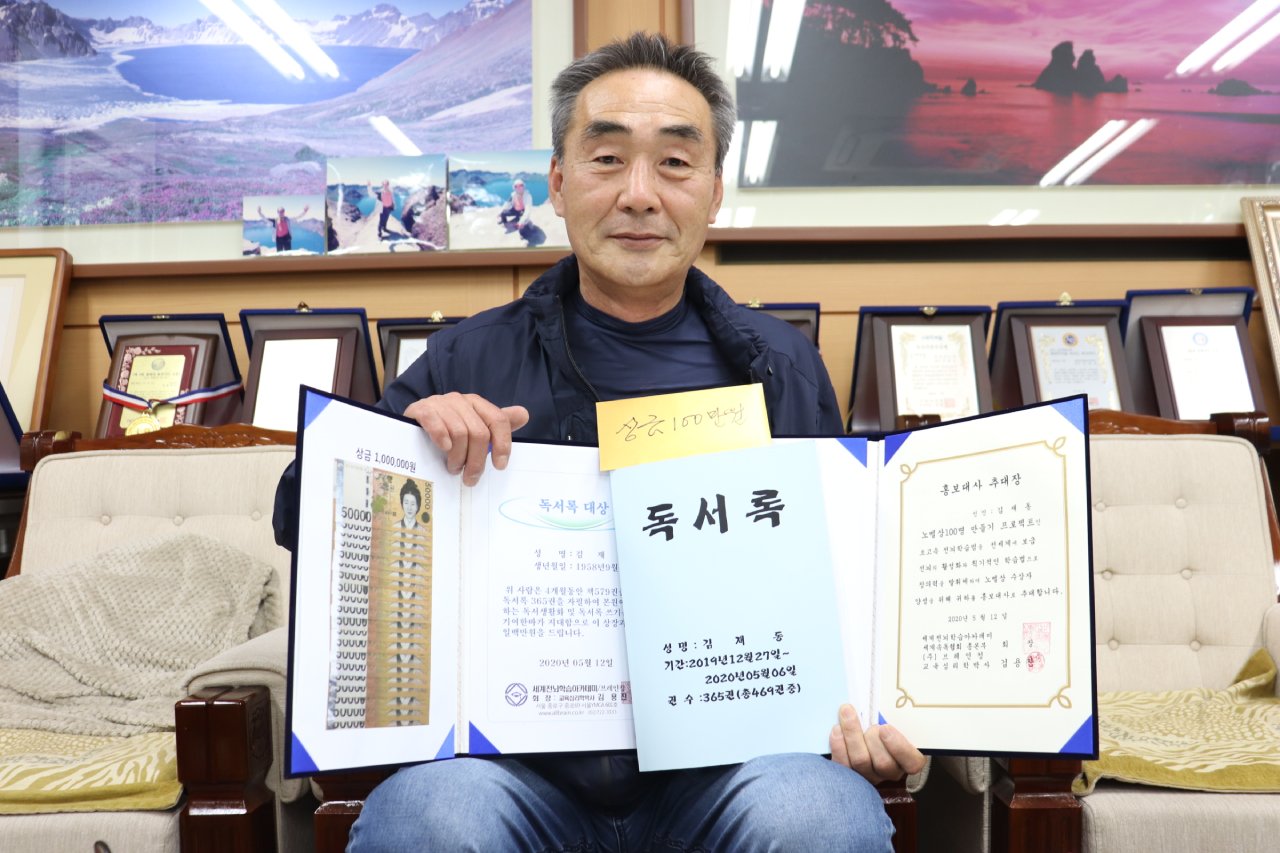 상금 100만원
상금 1,000,000원
50000
50000
독서록 대상
성 명 : 김 재
생년월일 : 1958년9월
위 사람은 4개월동안 책579권
독서록 365권을 자필하여 본원이
하는 독서생활화 및 독서록 쓰기
기여한바가 지대함으로 이 상장과
일백만원을 드립니다.
2020년 05월 12일
세계전뇌학습아카데미/브레인
회 장 : 교육심리학박사 김 용 진
서울 종로구 종로69 서울YMCA
독서록
성명 : 김 재 동
기간:2019년12월27일~
2020년05월06일
권 수 :365권(총469권 중)
홍보대사 추대장
성명 : 김 재 동
노벨상100명 만들기 프로젝트인
초고속 전뇌학습법을 전세계에 보급
전뇌의 활성화와 획기적인 학습법으로
창의력을 발휘케하여 노벨상 수상자
양성을 위해 귀하를 홍보대사로 추대합니다.
2020년 5월 12일
세계전뇌학습아카데미
세계속독협회 총본부 회 장
(주) 브레인킹
교육심리학박사 김용진